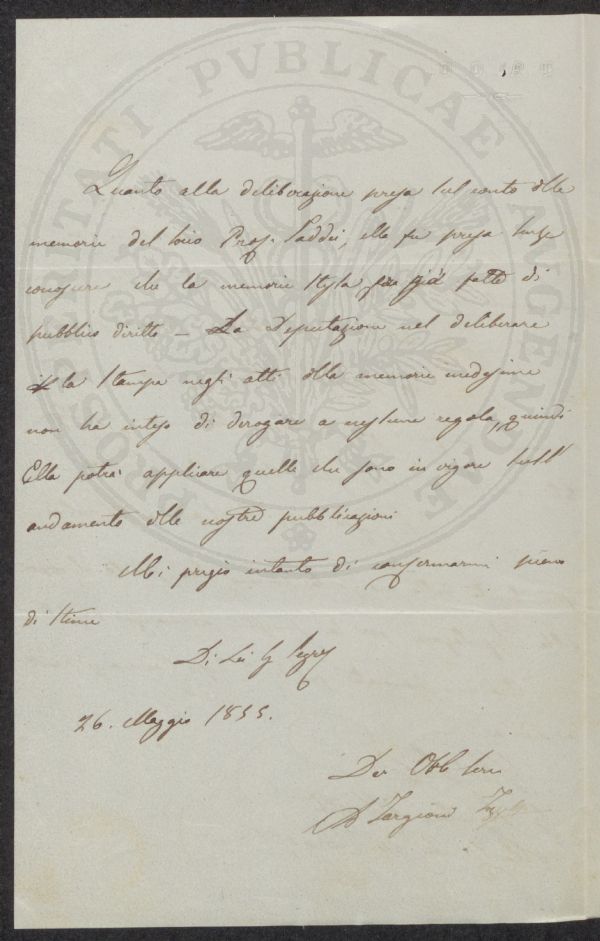 PROSPERITATI PVBLICAE AVGENDAE
Quanto alla deliberazione presa sul conto delle
memorie del socio Prof. Taddei, ella fu presa senza
conoscere che la memoria stessa fosse già fatta di
pubblico diritto — La Deputazione nel deliberare
la stampa negli atti della memoria medesima
non ha inteso di derogare a nessuna regola, quindi
Ella potrà applicare quelle che sono in vigore sull'
andamento delle nostre pubblicazioni
Mi pregio intanto di confermarmi pieno
di stima
Di Lei
26. Maggio 1855.
Dev Obb Serv
A Targioni